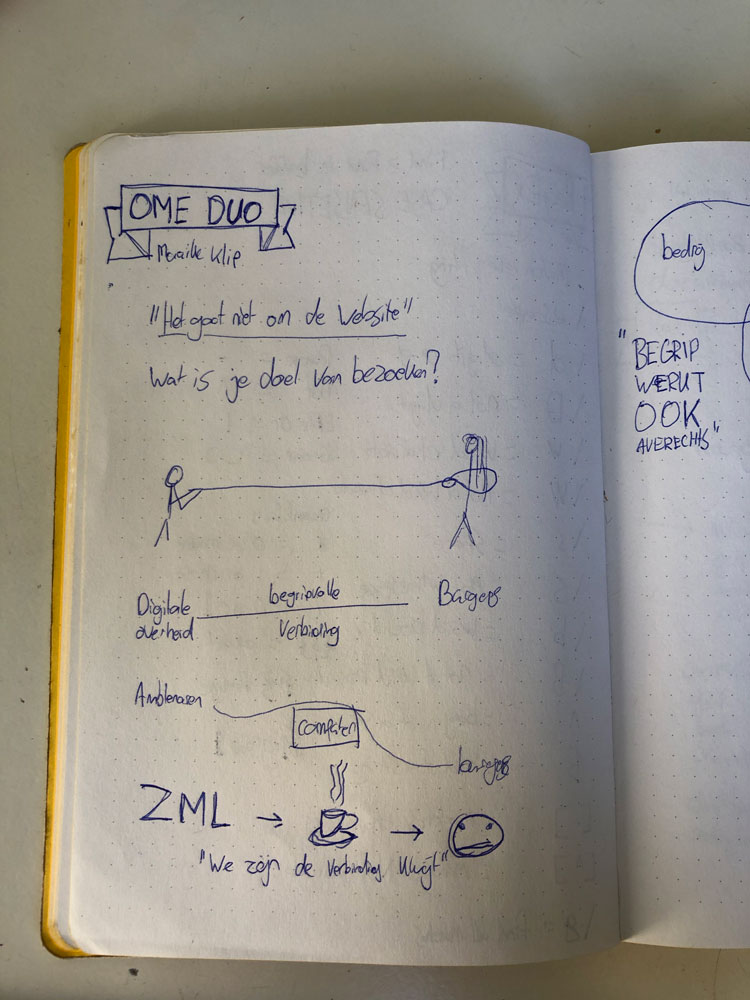 OME DUO
Klip
"Het gaat niet om de website"
Wat is je doel van bezoeken?
Digitale
overheid
begripvolle
Verbinding
Burgers
Ambtenaren
computer
burgers
ZML
"We zijn de verbinding kwijt"
bedrijg
"BEGRIP
WERKT
OOK
AVERECHTS"